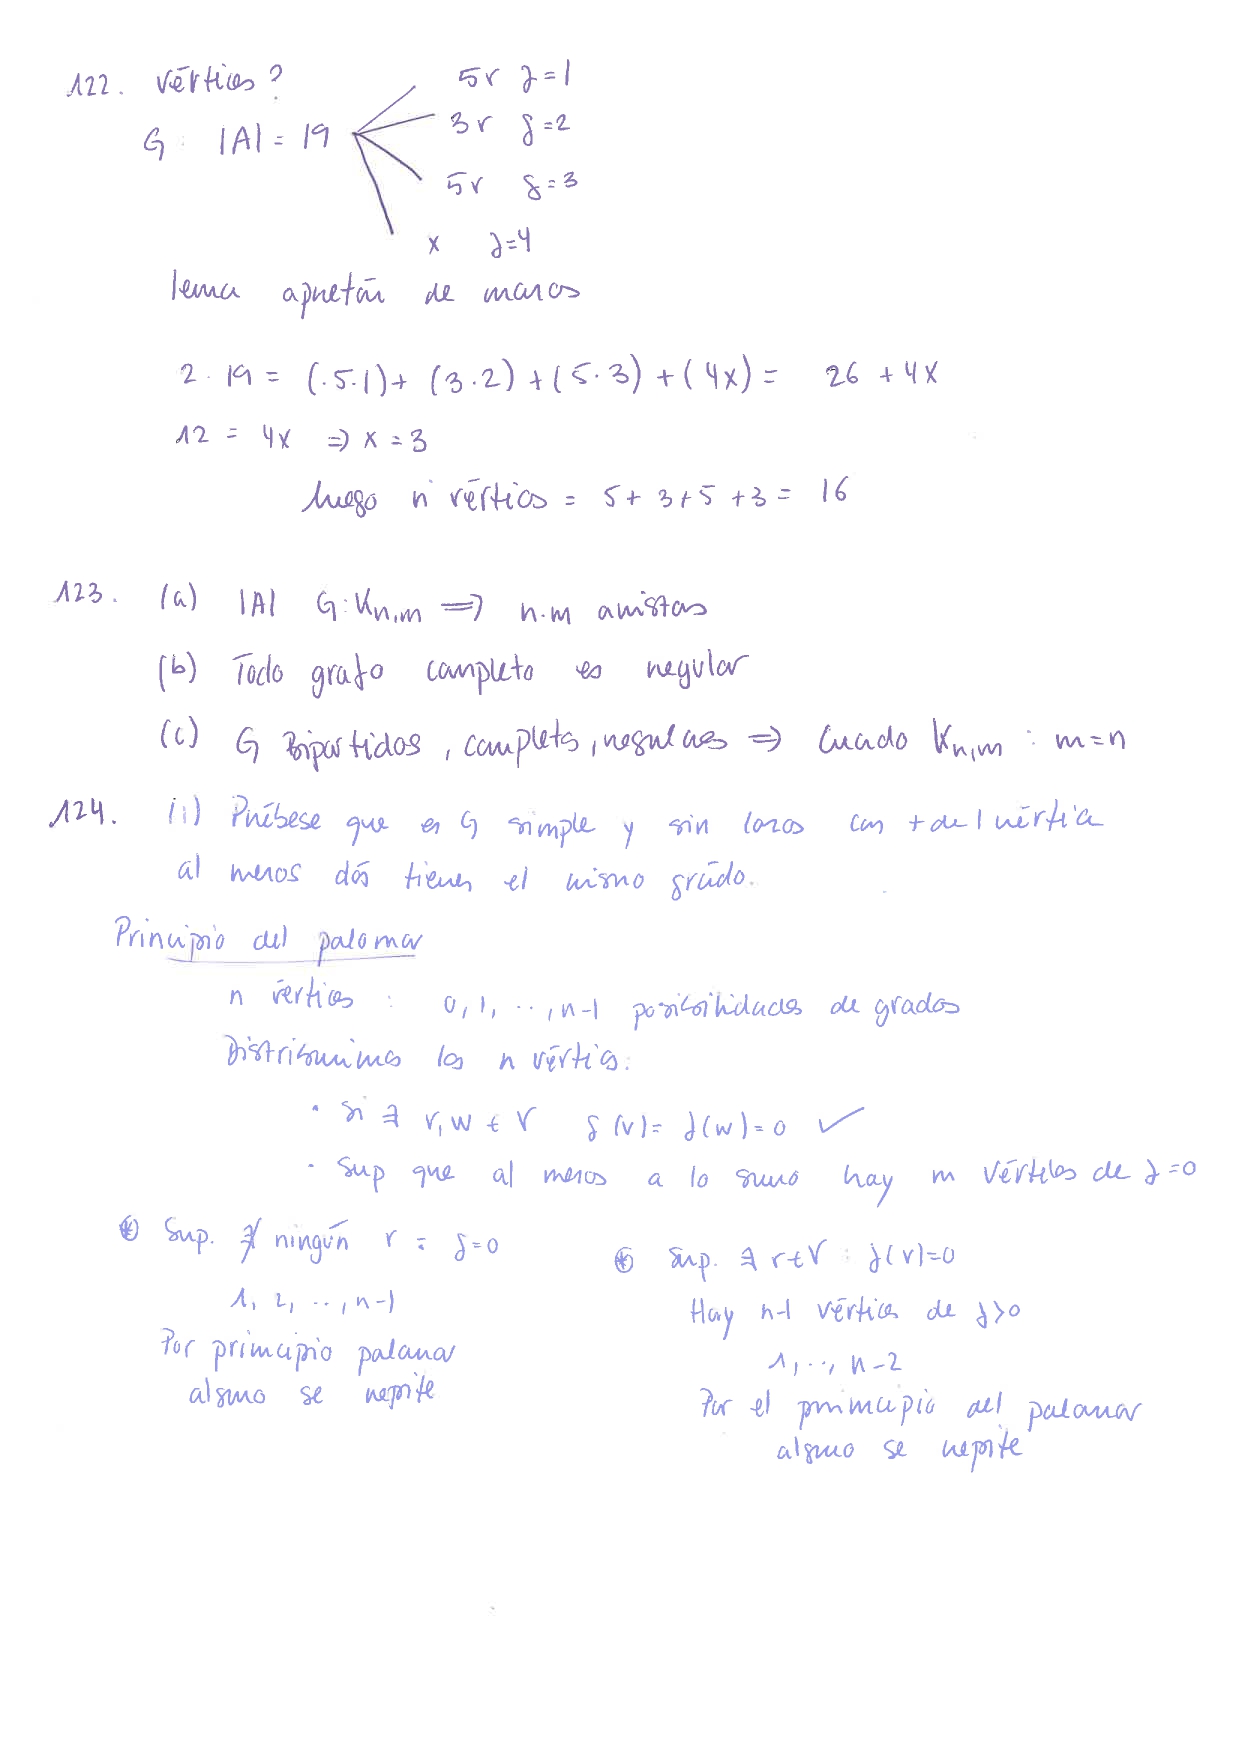 122. Vértices?
5v δ=1
G: |A| = 19
3v δ=2
5v δ=3
x δ=4
lema apretón de manos
2·19 = (5·1)+(3·2)+(5·3)+(4x) = 26 + 4x
12 = 4x ⇒ x = 3
luego nº vértices = 5+3+5+3 = 16
123. (a) |A| G: Kn,m ⇒ n·m aristas
(b) Todo grafo completo es regular
(c) G Bipartidos, completos, regulares ⇒ Cuando Kn,m : m=n
124. (ii) Pruébese que en G simple y sin lazos con + de 1 vértice
al menos dos tienen el mismo grado.
Principio del palomar
n vértices: 0, 1, ..., n-1 posibilidades de grados
Distribuimos los n vértices:
• Si ∃ v, w ∈ V δ(v) = δ(w) = 0 ✓
• Sup que al menos a lo sumo hay m vértices de δ=0
⊛ Sup. ∄ ningún v : δ=0
⊛ Sup. ∃ v∈V : δ(v)=0
1, 2, ..., n-1
Hay n-1 vértices de δ>0
Por principio palomar
1, ..., n-2
alguno se repite
Por el principio del palomar
alguno se repite